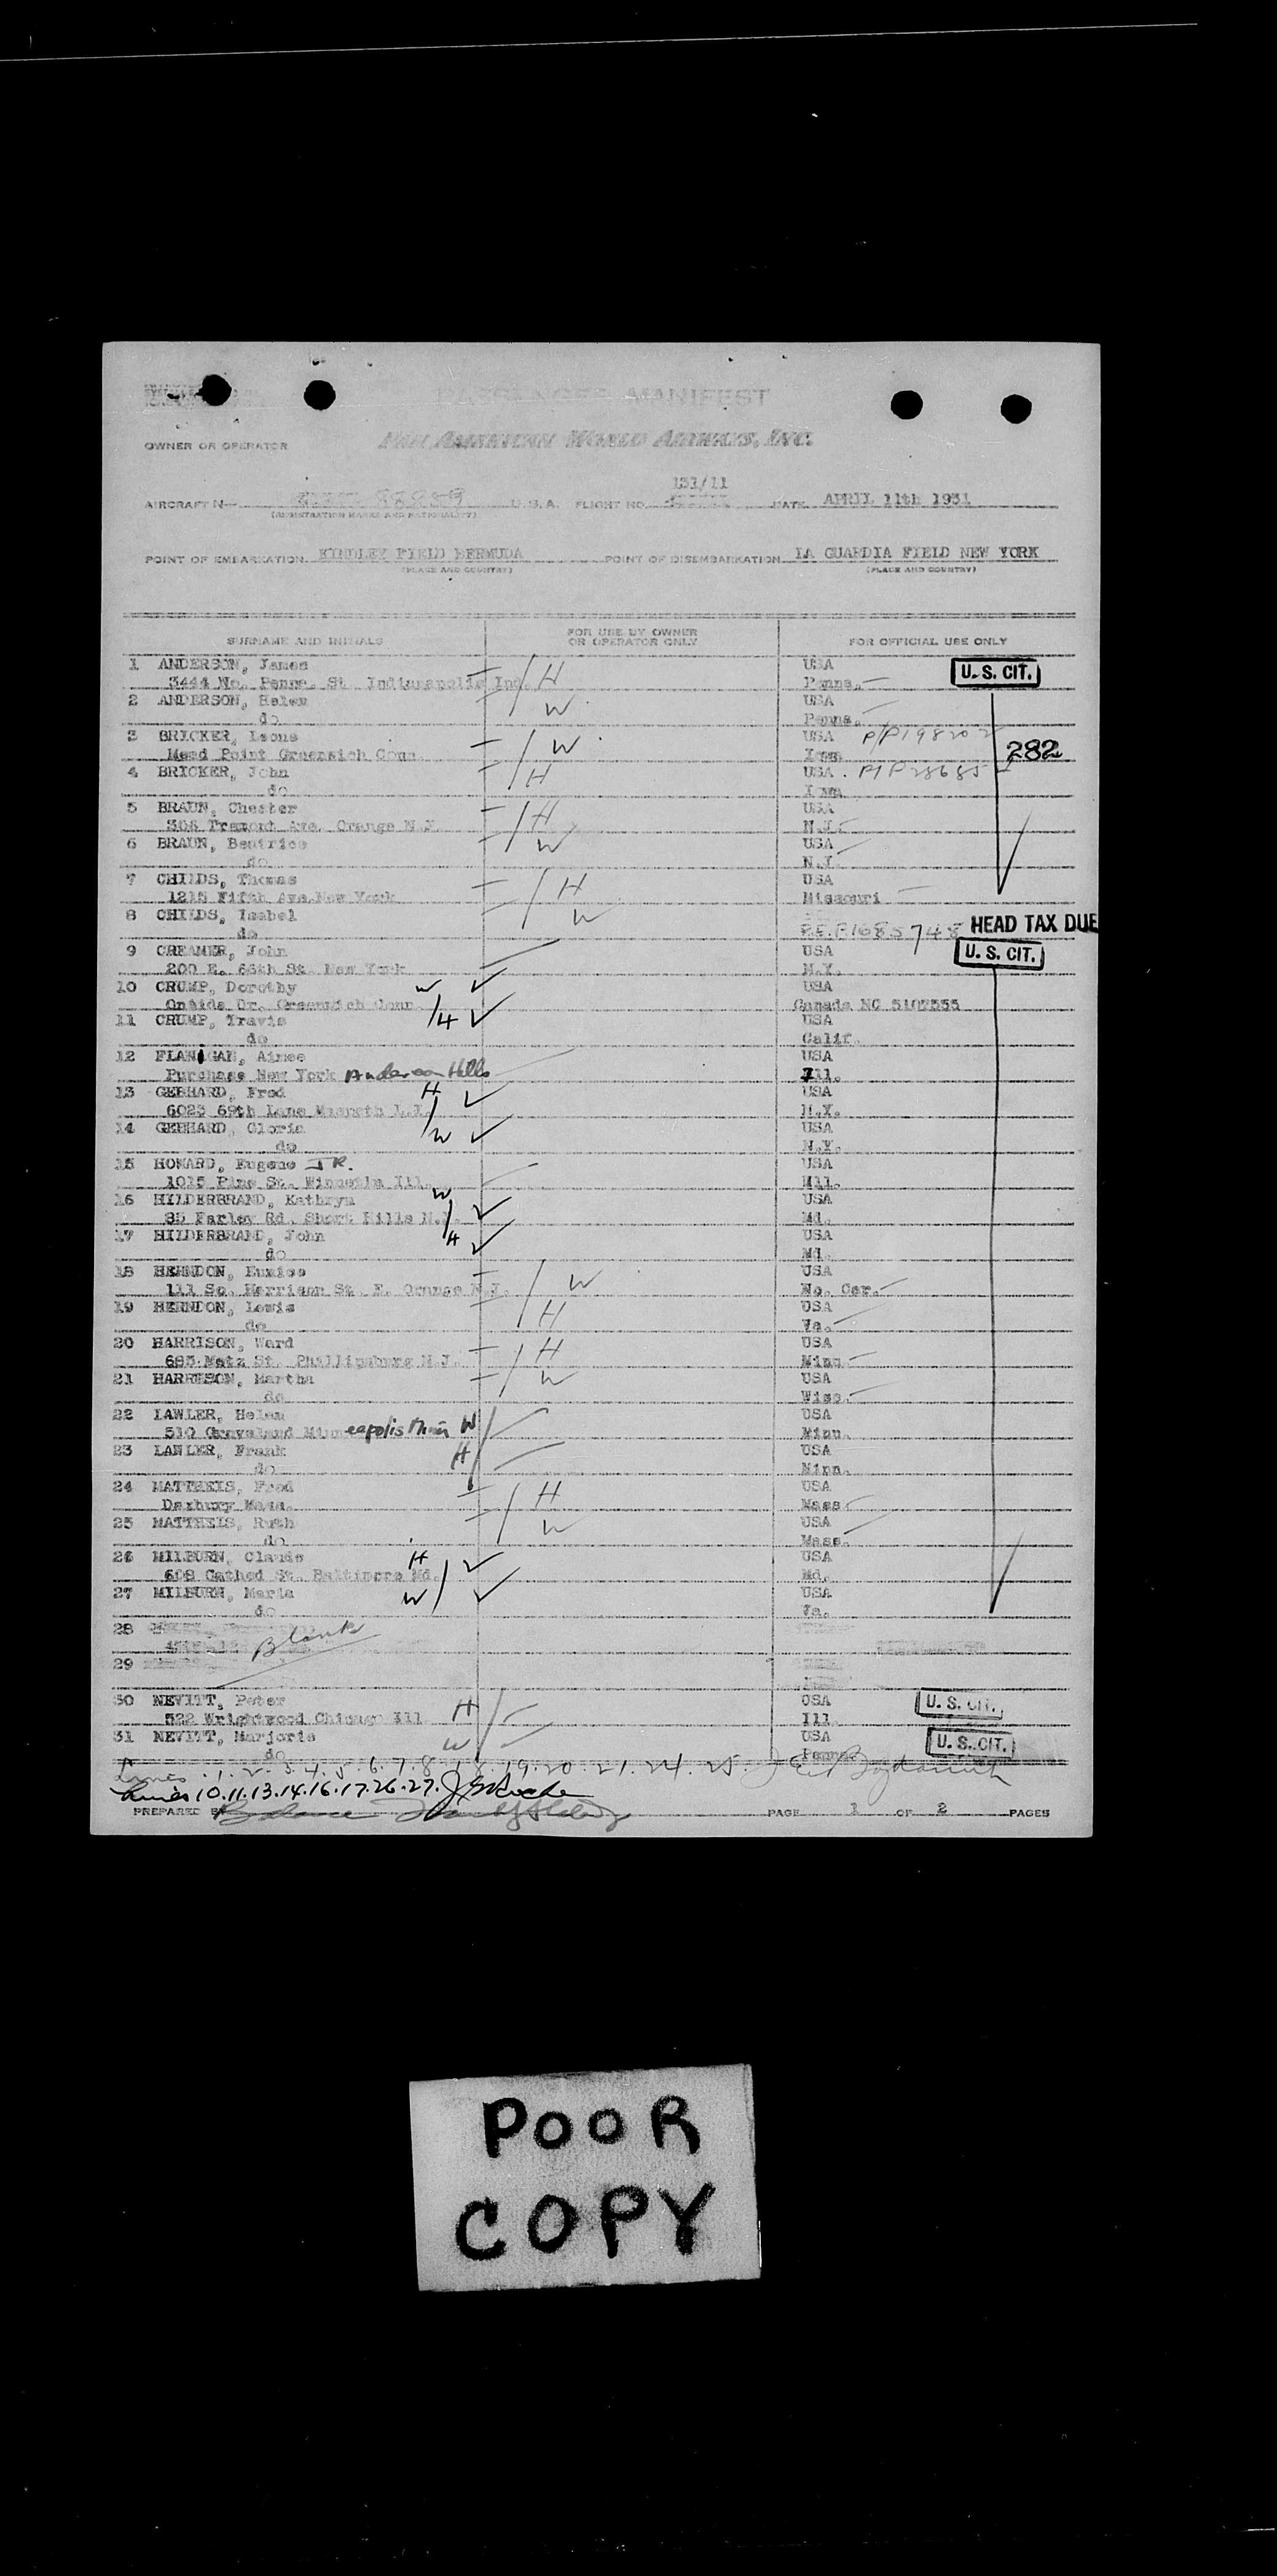 PASSENGER MANIFEST
OWNER OR OPERATOR PAN AMERICAN WORLD AIRWAYS, INC.
131/11
AIRCRAFT N— 88859 U.S.A. FLIGHT NO. DATE APRIL 11th 1951
(REGISTRATION MARKS AND NATIONALITY)
POINT OF EMBARKATION KINDLEY FIELD BERMUDA POINT OF DISEMBARKATION LA GUARDIA FIELD NEW YORK
(PLACE AND COUNTRY) (PLACE AND COUNTRY)
SURNAME AND INITIALS FOR USE BY OWNER OR OPERATOR ONLY FOR OFFICIAL USE ONLY
1 ANDERSON, James H USA U.S. CIT.
3444 No. Penna. St. Indianapolis Ind. Penna.
2 ANDERSON, Helen W USA
do Penna.
3 BRICKER, Leona W USA
Mead Point Greenwich Conn. Iowa 282
4 BRICKER, John H USA
do Iowa
5 BRAUN, Chester H USA
Tremont Ave. Orange N.J. N.J.
6 BRAUN, Beatrice W USA
do N.J.
7 CHILDS, Thomas H USA
1215 Fifth Ave. New York Missouri
8 CHILDS, Isabel W
do HEAD TAX DUE
9 CREAMER, John USA U.S. CIT.
200 E. 66th St. New York N.Y.
10 CRUMP, Dorothy W USA
Oneida Dr. Greenwich Conn. Canada NC 5107555
11 CRUMP, Travis H USA
do Calif.
12 FLANIGAN, Aimee USA
Purchase New York Anderson Hills Ill.
13 GEBHARD, Fred H USA
6023 69th Lane Maspeth L.I. N.Y.
14 GEBHARD, Gloria W USA
do N.Y.
15 HOWARD, Eugene JR. USA
1015 Pine St. Winnetka Ill. Ill.
16 HILDERBRAND, Kathryn W USA
85 Farley Rd. Short Hills N.J. Md.
17 HILDERBRAND, John H USA
do Md.
18 HERNDON, Eunice W USA
111 So. Harrison St. E. Orange N.J. No. Car.
19 HERNDON, Lewis H USA
do Va.
20 HARRISON, Ward H USA
693 Metz St. Phillipsburg N.J. Minn
21 HARRISON, Martha W USA
do Wisc.
22 LAWLER, Helen USA
510 Groveland Minneapolis Minn W Minn.
23 LAWLER, Frank H USA
do Minn.
24 MATTHEIS, Fred H USA
Duxbury Mass. Mass
25 MATTHEIS, Ruth W USA
do Mass.
26 MILBURN, Claude H USA
608 Cathed St. Baltimore Md. Md.
27 MILBURN, Maria W USA
do Va.
28 Blank
29
30 NEVITT, Peter H USA U.S. CIT.
522 Wrightwood Chicago Ill Ill.
31 NEVITT, Marjorie W USA U.S. CIT.
do Penna.
Lines 1. 2. 3. 4. 5. 6. 7. 8. 18. 19. 20. 21. 24. 25.
Lines 10.11.13.14.16.17.26.27.
PREPARED BY PAGE 1 OF 2 PAGES
POOR
COPY